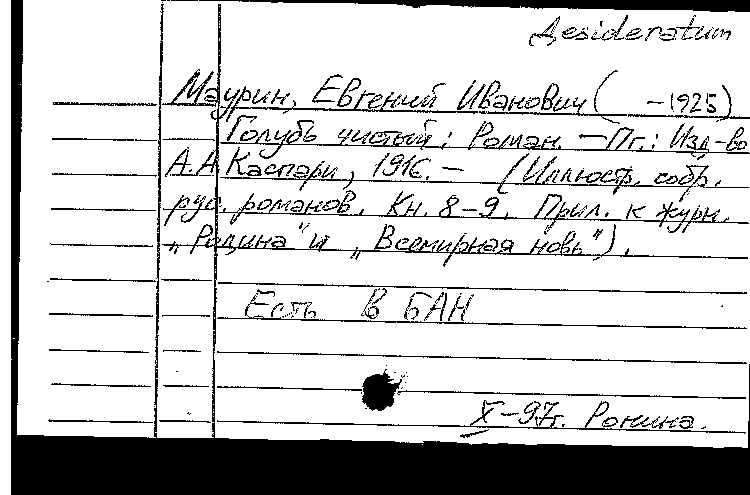 Desideratum
Маурин, Евгений Иванович ( –1925)
Голубь чистый: Роман. – Пг.: Изд-во
А.А. Каспари, 1916. – (Иллюстр. собр.
рус. романов. Кн. 8–9. Прил. к журн.
„Родина" и „Всемирная новь").
Есть в БАН
X–97г. Ронина.